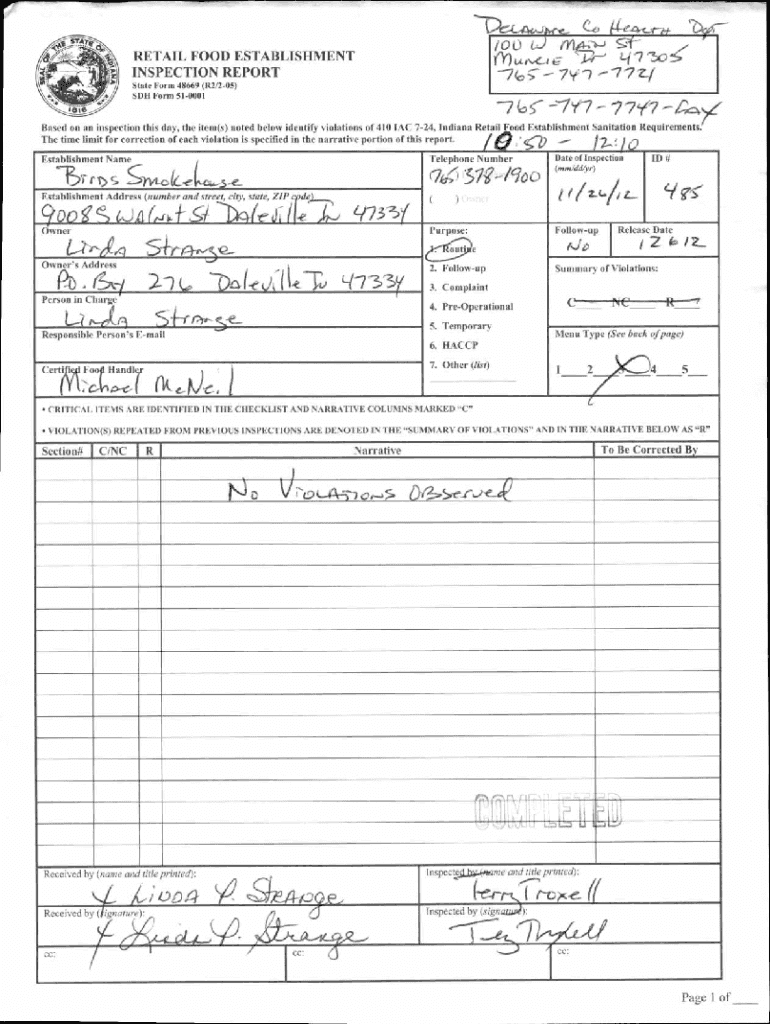 DELAWARE Co HEALTH Dpt
100 W MAIN ST
MUNCIE IN 47305
765-747-7721
765-747-7747-FAX
RETAIL FOOD ESTABLISHMENT
INSPECTION REPORT
State Form 48669 (R2/2-05)
SDH Form 51-0001
SEAL OF THE STATE OF INDIANA
1816
Based on an inspection this day, the item(s) noted below identify violations of 410 IAC 7-24, Indiana Retail Food Establishment Sanitation Requirements.
The time limit for correction of each violation is specified in the narrative portion of this report.
10:50 - 12:10
Establishment Name
Birds Smokehouse
Telephone Number
(765) 378-1900
( ) Owner
Date of Inspection
(mm/dd/yr)
11/26/12
ID #
485
Establishment Address (number and street, city, state, ZIP code)
9008 S WALNUT St Daleville IN 47334
Owner
Linda Strange
Purpose:
1. Routine
2. Follow-up
3. Complaint
4. Pre-Operational
5. Temporary
6. HACCP
7. Other (list)
Follow-up
No
Release Date
12 6 12
Owner's Address
P.O. Box 276 Daleville IN 47334
Summary of Violations:
C NC R
Person in Charge
Linda Strange
Responsible Person's E-mail
Menu Type (See back of page)
1 2 4 5
Certified Food Handler
Michael McNeil
• CRITICAL ITEMS ARE IDENTIFIED IN THE CHECKLIST AND NARRATIVE COLUMNS MARKED "C"
• VIOLATION(S) REPEATED FROM PREVIOUS INSPECTIONS ARE DENOTED IN THE "SUMMARY OF VIOLATIONS" AND IN THE NARRATIVE BELOW AS "R"
Section# C/NC R Narrative To Be Corrected By
No Violations Observed
COMPLETED
Received by (name and title printed):
X LINDA P. STRANGE
Inspected by (name and title printed):
Terry Troxell
Received by (signature):
X Linda P. Strange
Inspected by (signature):
cc: cc: cc:
Page 1 of